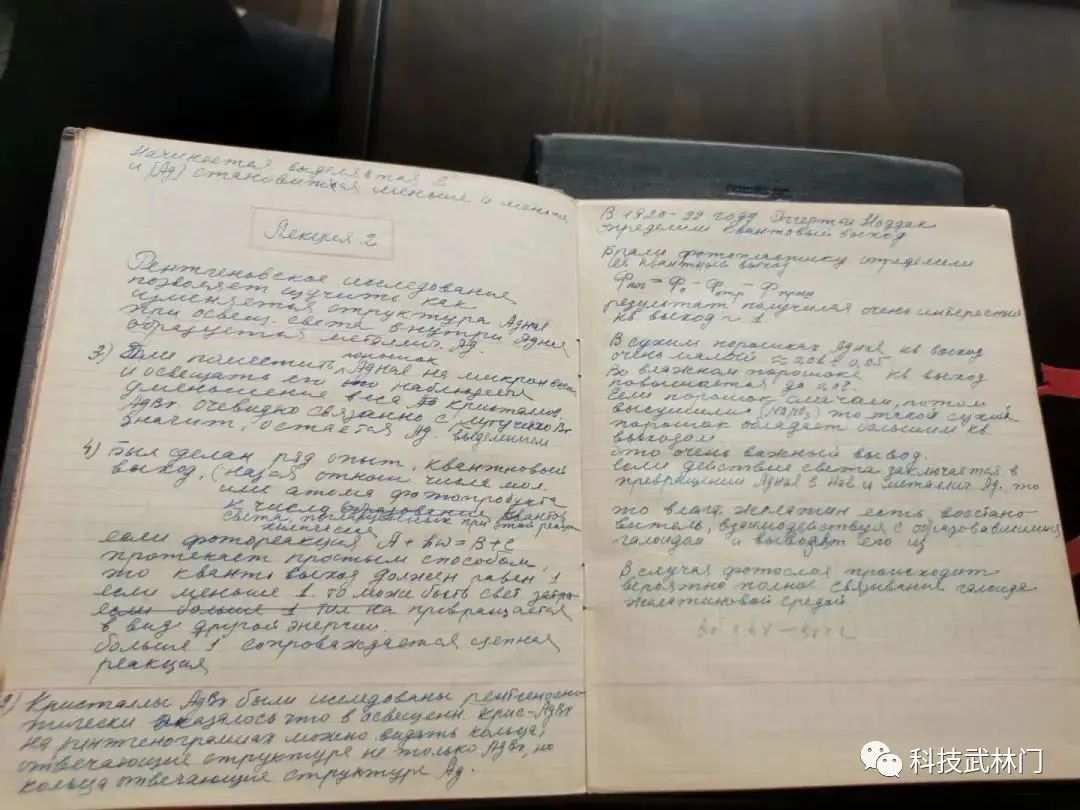 начинается выделяться
и [Ag] становится меньше и меньше
Лекция 2
Рентгеновское исследование
позволяет изучить как
изменяется структура AgHal
при освещ. света внутри AgHal
образуется металлич. Ag.
3) Если поместить порошок AgHal на микрон весы
и освещать его наблюдается
уменьшение веса кристаллов
AgBr. очевидно связанно с Br
значит, остается Ag. выделением
4) Был сделан ряд опыт. квантновый
выход, (назв отнош числа мол.
или атома фотопродукта
к числу квантов
света, поглощенных при этой реак
химической
если фотореакция A + hω = B + C
протекает простым способом,
то квантв выход должен равен 1
если меньше 1. то може быть свет
если больше 1 так на превращается
в вид другой энергии.
больше 1 сопроваждается цепная
реакция
2) Кристаллы AgBr были исследованы рентгеноско-
пически оказалось что в освещенн. крис-AgBr
на ринтженограммах можно видать кольца,
отвечающие структуре не только AgBr, но
кольца отвечающие структуре Ag.
В 1920-22 году Эггерт и Ноддак
определили квантовый выход
Брали фотопластинку. определили
её квантный выход
Φпог = Φ₀ - Φотр - Φпрош
результат получился очень интересный
кв выход ~ 1.
В сухих порошках AgHal кв выход
очень малый 0,05
Во влажном порошке кв выход
повышается до
Если порошок смочали, потом
высушили (NaNO₂) то такой сухой
порошок обладает большим кв
выходом.
это очень важный вывод.
если действие света заключается в
превращении AgHal в Hal и металлич Ag, то
то влаг. желатин есть восстано-
витель, взаимодействуя с образовавшимся
галоидом и выводят его из
В случая фотослоя происходит
вероятно полное связывание галоида
желатиновой средой
科技武林门